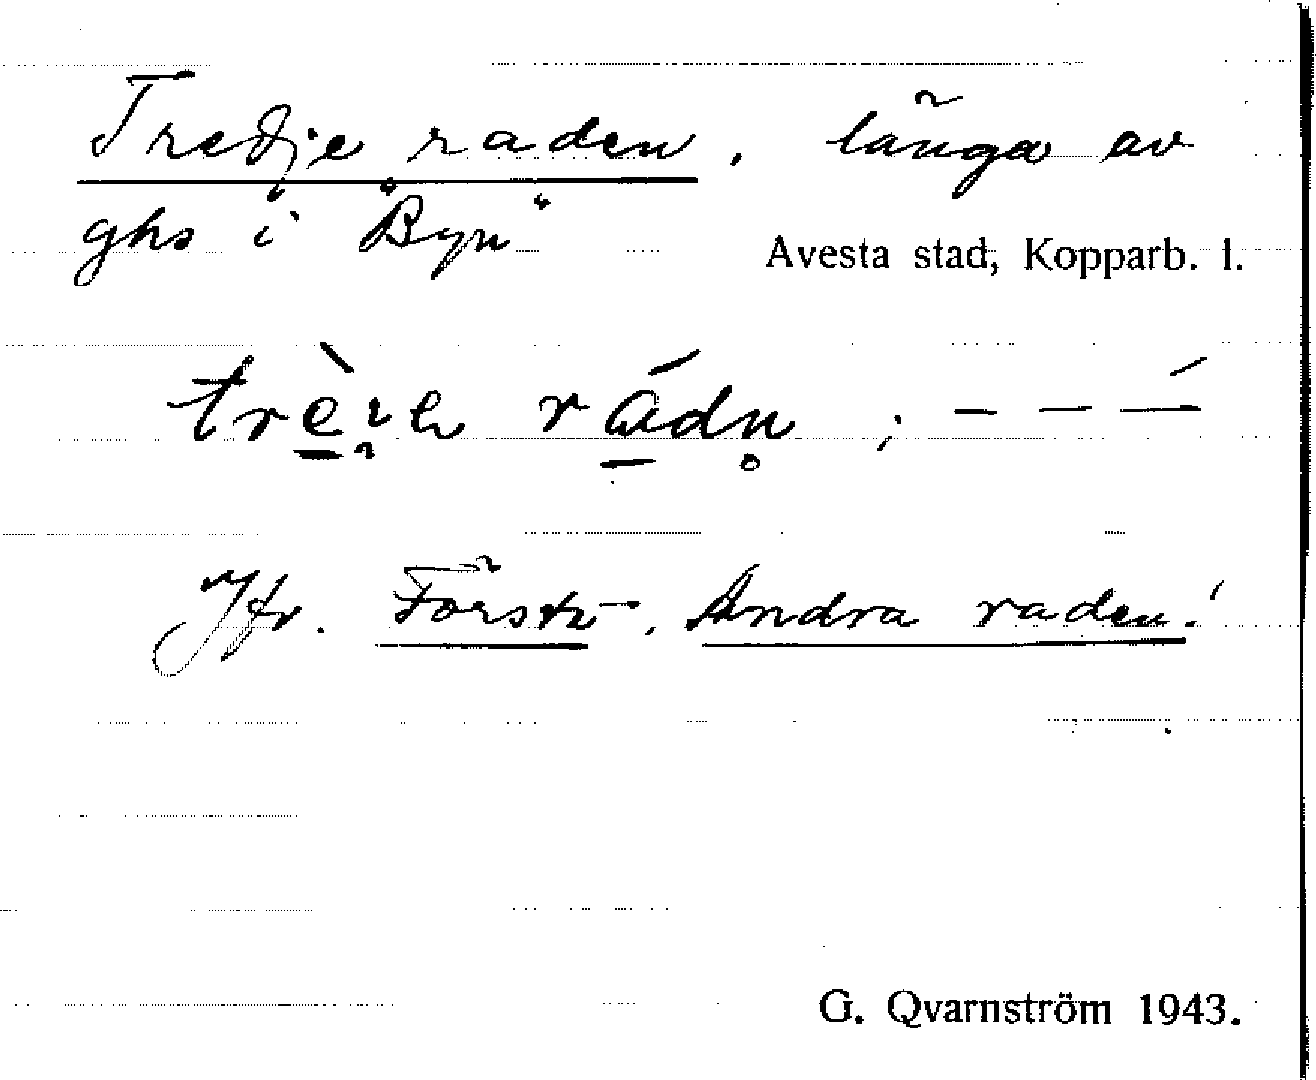 Tredje raden, länga av
ghs i "Byn"
Avesta stad, Kopparb. l.
rádn ; – – –́
Jfr. Första-, Andra raden!
G. Qvarnström 1943.